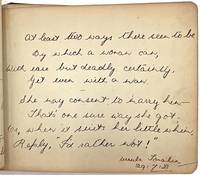 At least two ways there seem to be
By which a woman can,
With ease but deadly certainty,
Get even with a man.
She may consent to marry him—
That's one sure way she got.
Or, when it suits her little whim,
Reply, "I'd rather not!"
29.7.31